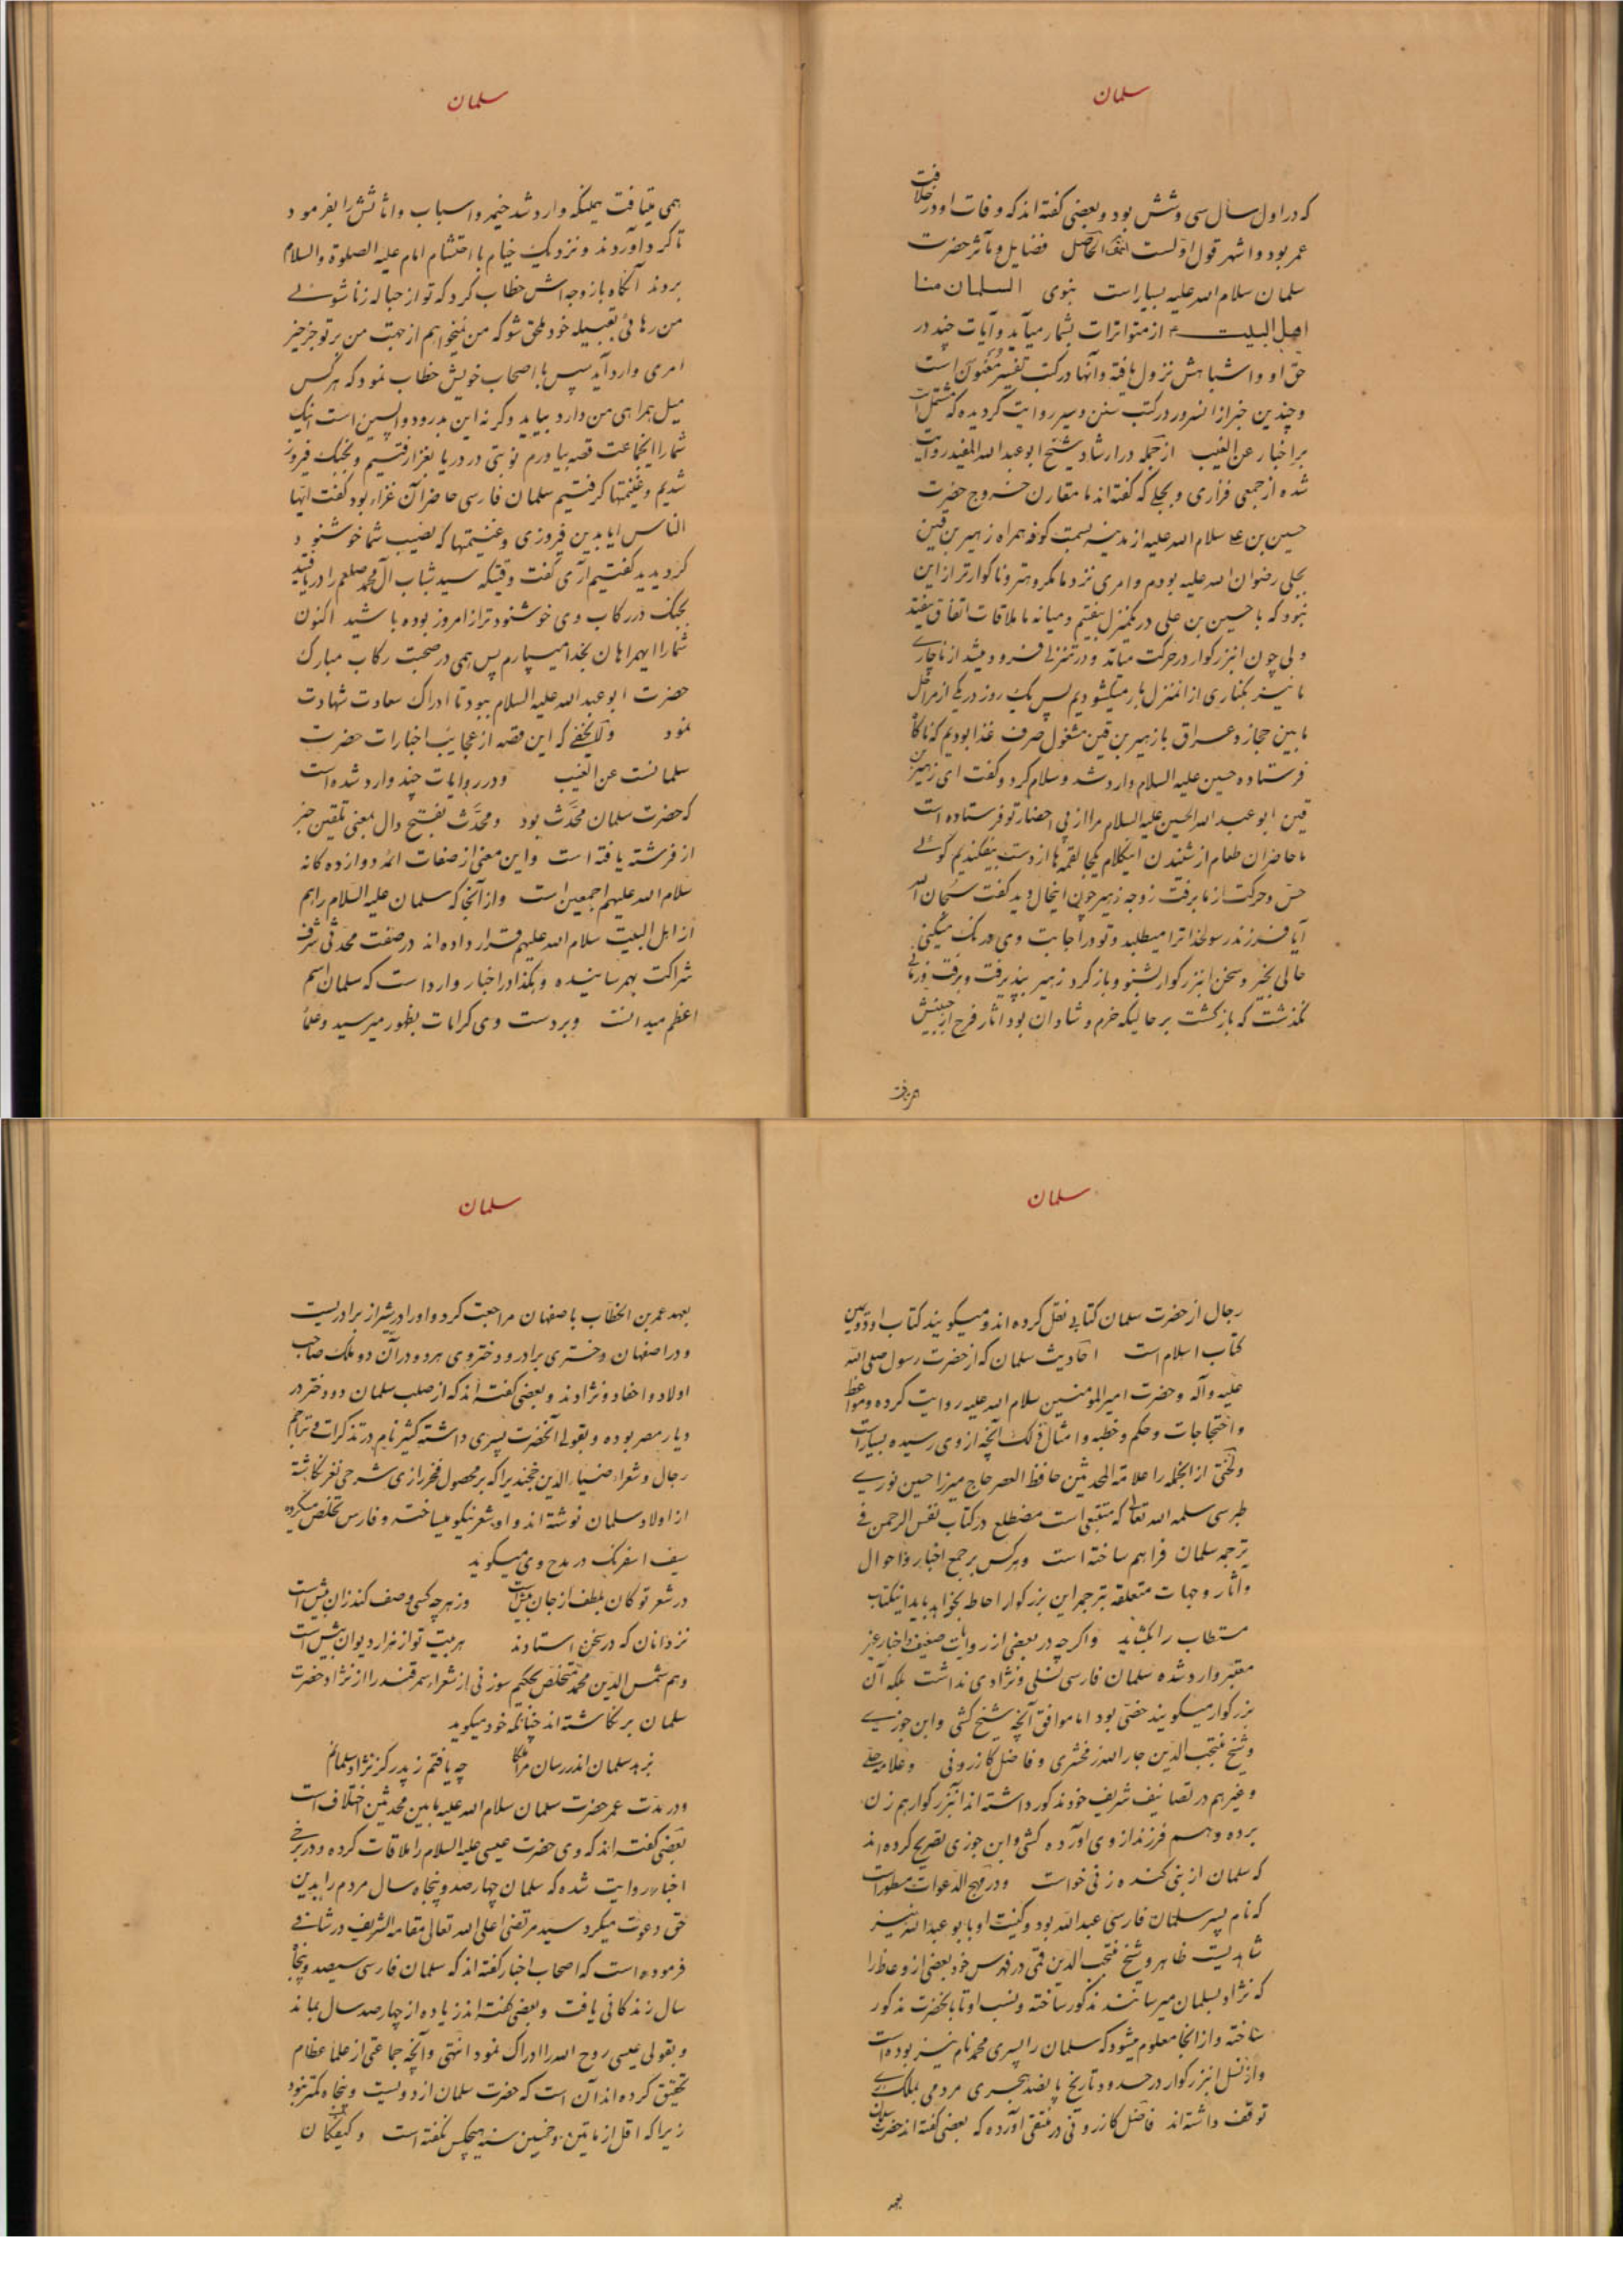 سلمان
که در اول سال سی و شش بود و بعضی گفته‌اند که وفات او در خلافت
عمر بود و اشهر قول اولست الحاصل فضایل و مآثر حضرت
سلمان سلام الله علیه بسیار است نبوی السلمان منا
اهل البیت از متواترات بشمار میآید و آیات چند در
حق او و اشباهش نزول یافته و آنها در کتب تفسیر معنون است
و چندین خبر از آنسرور در کتب سنن و سیر روایت گردیده که مشتمل است
بر اخبار عن الغیب از جمله در ارشاد شیخ ابو عبد الله المفید روایت
شده از جمعی فزاری و بجلی که گفته‌اند ما مقارن خروج حضرت
حسین بن علی سلام الله علیه از مدینه بسمت کوفه همراه زهیر بن قین
بجلی رضوان الله علیه بودم و امری نزد ما مکروهتر و ناگوارتر از این
نبود که با حسین بن علی در یکمنزل بیفتیم و میانه ما ملاقات اتفاق بیفتد
ولی چون آنبزرگوار در حرکت میآمد و در منزلی فرود میشد از ناچاری
ما نیز بکناری از آنمنزل بار میگشودیم پس یک روز در یکی از مراحل
مابین حجاز و عراق با زهیر بن قین مشغول صرف غذا بودیم که ناگاه
فرستاده حسین علیه السلام وارد شد و سلام کرد و گفت ای زهیر بن
قین ابو عبد الله الحسین علیه السلام مرا از پی احضار تو فرستاده است
ما حاضران طعام از شنیدن اینکلام یکجا لقمه‌ها از دست بیفکندیم گوئی
حس و حرکت از ما برفت زوجه زهیر چون اینحال دید گفت سبحان الله
آیا فرزند رسولخدا ترا میطلبد و تو در اجابت وی درنگ میکنی
حالی بخیز و سخن آنبزرگوار بشنو و باز گرد زهیر بپذیرفت و برفت زمانی
نگذشت که بازگشت بر حالیکه خرم و شادان بود آثار فرح از جبینش
همی یافت
سلمان
همی میتافت همینکه وارد شد خیمه و اسباب و اثاثش را بفرمود
تا گرد آوردند و نزدیک خیام با احتشام امام علیه الصلوة والسلام
بروند آنگاه با زوجه‌اش خطاب کرد که تو از حباله زناشوئی
من رهائی بقبیله خود ملحق شو که من نمیخواهم از جهت من بر تو جز خیر
امری وارد آید سپس با اصحاب خویش خطاب نمود که هر کس
میل همراهی من دارد بیاید وگرنه این بدرود واپسین است اینک
شما را ایجماعت قصه بیاورم نوبتی در دریا بغزا رفتیم و بجنگ فیروز
شدیم و غنیمتها گرفتیم سلمان فارسی حاضر آن غزاء بود گفت ایها
الناس آیا بدین فیروزی و غنیمتها که نصیب شما خوشنود
گردیدید گفتیم آری گفت وقتیکه سید شباب آل محمد صلعم را دریافتید
بجنگ در رکاب وی خوشنودتر از امروز بوده باشید اکنون
شما را ایهمراهان بخدا میسپارم پس همی در صحبت رکاب مبارک
حضرت ابو عبد الله علیه السلام ببود تا ادراک سعادت شهادت
نمود ولا یخفی که این قصه از عجایب اخبارات حضرت
سلمانست عن الغیب و در روایات چند وارد شده است
که حضرت سلمان محدَّث بود و محدَّث بفتح دال بمعنی تلقین خبر
از فرشته یافته است و این معنی از صفات ائمه دوازده کانه
سلام الله علیهم اجمعین است و از آنجا که سلمان علیه السلام را هم
از اهل البیت سلام الله علیهم قرار داده‌اند در صفت محدثی شرف
شراکت بهمرسانیده و هکذا در اخبار وارد است که سلمان اسم
اعظم میدانست و بر دست وی کرامات بظهور میرسید و علماء
سلمان
رجال از حضرت سلمان کتابی نقل کرده‌اند و میگویند کتاب او دومین
کتاب اسلام است احادیث سلمان که از حضرت رسول صلی الله
علیه وآله و حضرت امیر المؤمنین سلام الله علیه روایت کرده و مواعظ
و احتجاجات و حکم و خطبه و امثال ذلک آنچه از وی رسیده بسیار است
و لختی از آنجمله را علامة المحدثین حافظ العصر حاج میرزا حسین نوری
طبرسی سلمه الله تعالی که متتبعی است مضطلع در کتاب نفس الرحمن فی
ترجمه سلمان فراهم ساخته است و هر کس بر جمع اخبار و احوال
و آثار و جهات متعلقه بترجمه این بزرگوار احاطه بخواهد باید اینکتاب
مستطاب را بگشاید و اگرچه در بعضی از روایات ضعیف و اخبار غیر
معتبر وارد شده سلمان فارسی نسلی و نژادی نداشت بلکه آن
بزرگوار میگویند خصّی بود اما موافق آنچه شیخ کشی و ابن جوزی
و شیخ منتجب الدین جار الله زمخشری و فاضل کازرونی و علامه حلی
و غیرهم در تصانیف شریف خود مذکور داشته‌اند آنبزرگوار هم زن
برده و هم فرزند از وی آورده کشی و ابن جوزی تصریح کرده‌اند
که سلمان از بنی کنده زنی خواست و در مهج الدعوات مسطور است
که نام پسر سلمان فارسی عبد الله بود و کنیت او با بو عبد الله نیز
شاهدیست ظاهر و شیخ منتجب الدین قمی در فهرس خود بعضی از وعاظ را
که نژاد بسلمان میرسانند مذکور ساخته و نسب او تا بآنحضرت مذکور
ساخته و از آنجا معلوم میشود که سلمان را پسری محمد نام نیز بوده است
و از نسل آنبزرگوار در حدود تاریخ پانصد هجری مردمی بملک ری
توقف داشته‌اند فاضل کازرونی در منتقی آورده که بعضی گفته‌اند حضرت سلمان
بعهد
سلمان
بعهد عمر بن الخطاب باصفهان مراجعت کرد و او را در شیراز برادریست
و در اصفهان دختری برادر و دختر وی هر دو در آن دو ملک صاحب
اولاد و احفاد و نژادند و بعضی گفته‌اند که از صلب سلمان دو دختر در
دیار مصر بوده و بقولی آنحضرت پسری داشته کثیر نام در تذکرات و تراجم
رجال و شعراء ضیاء الدین خجندی را که بر محصول فخر رازی شرحی نغز نگاشته
از اولاد سلمان نوشته‌اند و او شعر نیکو میساخته و فارس تخلص میکرده
سیف اسفرنگ در مدح وی میگوید
در شعر تو کان بلطف از جان بیش است وز هرچه کسی وصف کند زان بیش است
نزد آنان که در سخن استادند هر بیت تو از هزار دیوان بیش است
و هم شمس الدین محمد متخلص بحکیم سوزنی از شعراء سمرقند را از نژاد حضرت
سلمان بر نگاشته‌اند چنانکه خود میگوید
بزهد سلمان اندر رسان مرا ملکا چه یافتم ز پدر کز نژاد سلمانم
و در مدت عمر حضرت سلمان سلام الله علیه مابین محدثین اختلاف است
بعضی گفته‌اند که وی حضرت عیسی علیه السلام را ملاقات کرده و در برخی
اخبار روایت شده که سلمان چهارصد و پنجاه سال مردم را بدین
حق دعوت میکرد سید مرتضی اعلی الله تعالی مقامه الشریف در شافی
فرموده است که اصحاب اخبار گفته‌اند که سلمان فارسی سیصد و پنجاه
سال زندگانی یافت و بعضی گفته‌اند زیاده از چهارصد سال بماند
و بقولی عیسی روح الله را ادراک نمود انتهی و آنچه جماعتی از علماء عظام
تحقیق کرده‌اند آن است که حضرت سلمان از دویست و پنجاه کمتر نبود
زیرا که اقل از ماتین و خمسین سنه هیچکس نگفته است و